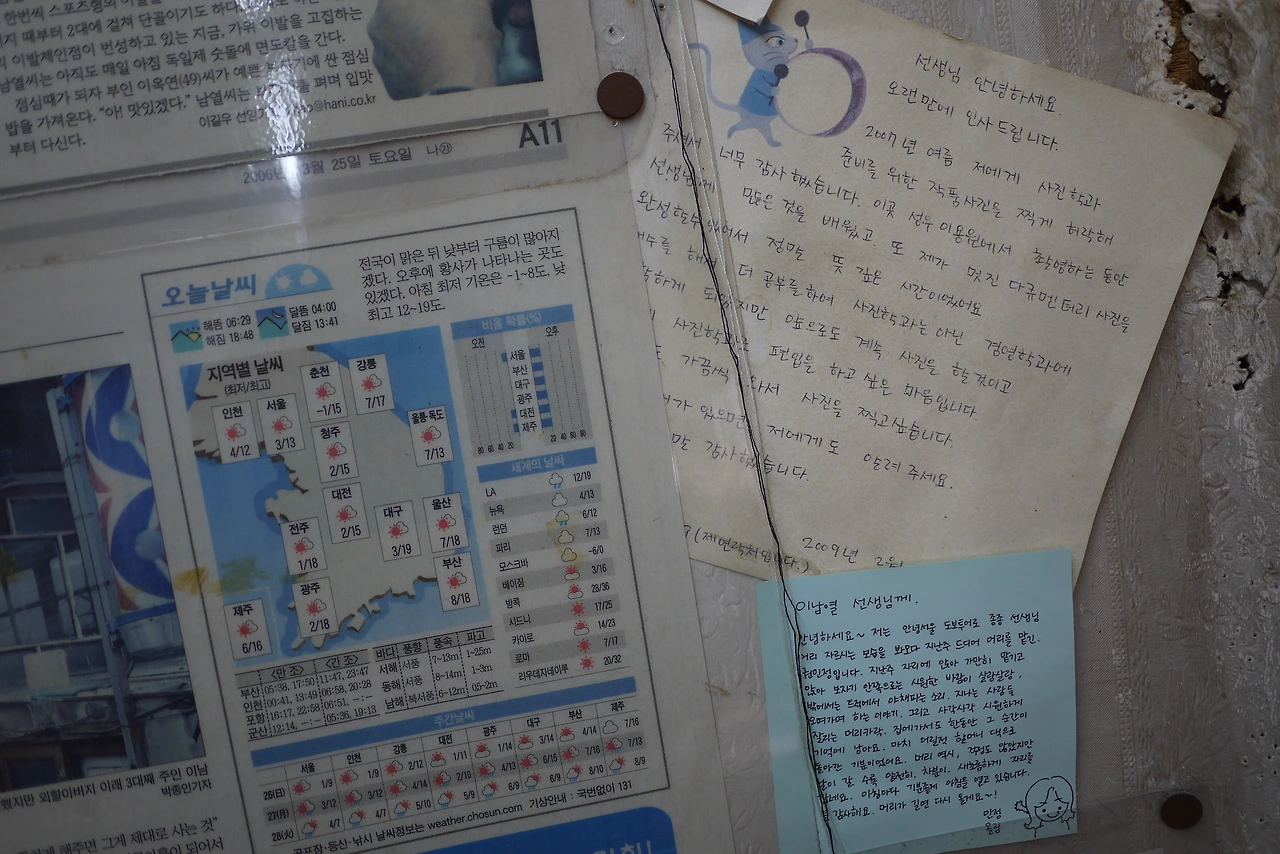 한번씩 스포츠형의
지 때부터 2대에 걸쳐 단골이기도 하다
의 이발체인점이 번성하고 있는 지금, 가위 이발을 고집하는
남열씨는 아직도 매일 아침 독일제 숫돌에 면도칼을 간다.
점심때가 되자 부인 이옥연(49)씨가 예쁜 싼 점심
밥을 가져온다. “아! 맛있겠다.” 남열씨는 펴며 입맛
부터 다신다.
이길우 선임기자 @hani.co.kr
2006년 3월 25일 토요일 나㉮
A11
오늘날씨
전국이 맑은 뒤 낮부터 구름이 많아지
겠다. 오후에 황사가 나타나는 곳도
있겠다. 아침 최저 기온은 -1~8도, 낮
최고 12~19도.
해뜸 06:29 달뜸 04:00
해짐 18:48 달짐 13:41
지역별 날씨
(최저/최고)
춘천 -1/15
강릉 7/17
인천 4/12
서울 3/13
청주 2/15
울릉·독도 7/13
대전 2/15
대구 3/19
울산 7/18
전주 1/18
부산 8/18
광주 2/18
제주 6/16
비올 확률(%)
오전 오후
서울
부산
대구
광주
대전
제주
80 60 40 20 20 40 60 80
세계의 날씨
LA 12/19
뉴욕 4/13
런던 6/12
파리 7/13
모스크바 -6/0
베이징 3/16
방콕 28/36
시드니 17/25
카이로 14/23
로마 7/17
리우데자네이루 20/32
<만 조> <간 조>
부산 05:38, 17:50 11:47, 23:47
인천 00:41, 13:49 06:58, 20:28
포항 16:17, 22:58 06:51, --:--
군산 12:14, --:-- 05:36, 19:13
바다 풍향 풍속 파고
서해 서풍 7~13m 1~25m
동해 서풍 8~14m 1~3m
남해 북서풍 6~12m 0.5~2m
주간날씨
서울 인천 강릉 대전 광주 대구 부산 제주
26(日) 1/9 1/9 2/12 1/11 1/14 3/14 4/14 7/16
27(月) 3/12 3/12 4/14 2/10 4/13 6/15 7/16 7/13
28(火) 4/7 4/7 5/10 5/9 6/9 6/9 8/10 8/9
공포장·등산·낚시 날씨정보는 weather.chosun.com 기상안내 : 국번없이 131
했지만 외할아버지 이래 3대째 주인 이남
박종인기자
그렇게 해주면 그게 제대로 사는 것”
선생님 안녕하세요.
오랜만에 인사드립니다.
2007년 여름 저에게 사진학과
준비를 위한 작품사진을 찍게 허락해
주셔서 너무 감사했습니다. 이곳 성우이용원에서 촬영하는 동안
선생님께 많은 것을 배웠고. 또 제가 멋진 다큐멘터리 사진을
완성할수 있어서 정말 뜻 깊은 시간이었어요
수를 해서 더 공부를 하여 사진학과는 아닌 경영학과에
하게 되었지만 앞으로도 계속 사진을 할것이고
사진학과로 편입을 하고 싶은 마음입니다
가끔씩 와서 사진을 찍고싶습니다.
가 있으면 저에게도 알려 주세요.
말 감사했습니다.
2009년 2월
(제연락처입니다.)
이남열 선생님께.
안녕하세요~ 저는 안녕서울 도보투어로 종종 선생님
머리 자르시는 모습을 봐오다 지난주 드디어 머리를 맡긴
현민정입니다. 지난주 자리에 앉아 가만히 맡기고
앉아 보자기 안쪽으로는 시원한 바람이 살랑살랑,
밖에서는 트럭에서 야채파는 소리. 지나는 사람들
오며가며 하는 이야기. 그리고 사각사각 시원하게
잘리는 머리카락. 집에가서도 한동안 그 순간이
기억에 남아요. 마치 어릴적 할머니 댁으로
돌아간 기분이었어요. 머리 역시, 걱정도 않았지만
날이 갈 수록 얌전히, 차분히, 새초롬하게 자리를
아침마다 기분좋게 아침을 열고 있습니다.
감사해요. 머리가 길면 다시 올게요~!
민정
올림